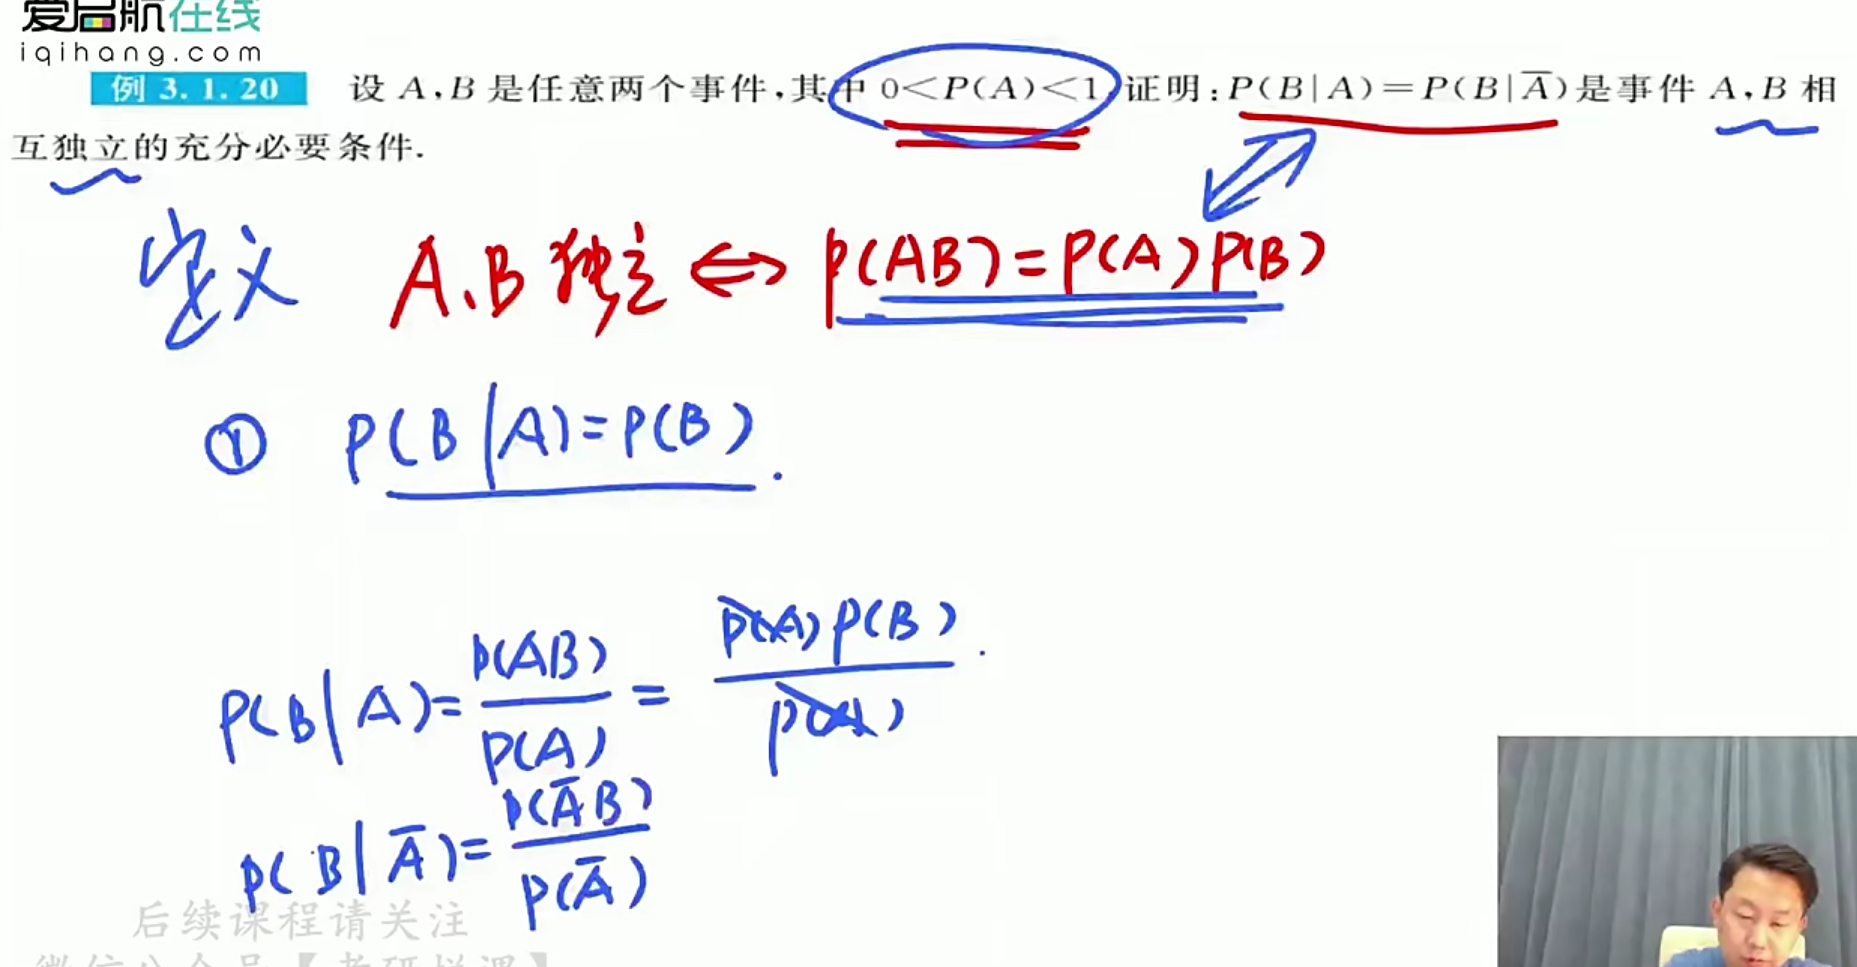 爱启航在线
iqihang.com
例 3.1.20 设 A,B 是任意两个事件,其中 0<P(A)<1,证明:P(B|A)=P(B|A̅)是事件 A,B 相
互独立的充分必要条件.
定义 A、B 独立 ⇔ P(AB)=P(A)P(B)
① P(B|A)=P(B).
P(B|A)=P(AB)/P(A)=P(A)P(B)/P(A).
P(B|A̅)=P(A̅B)/P(A̅)
后续课程请关注
微信公众号【考研拼课】